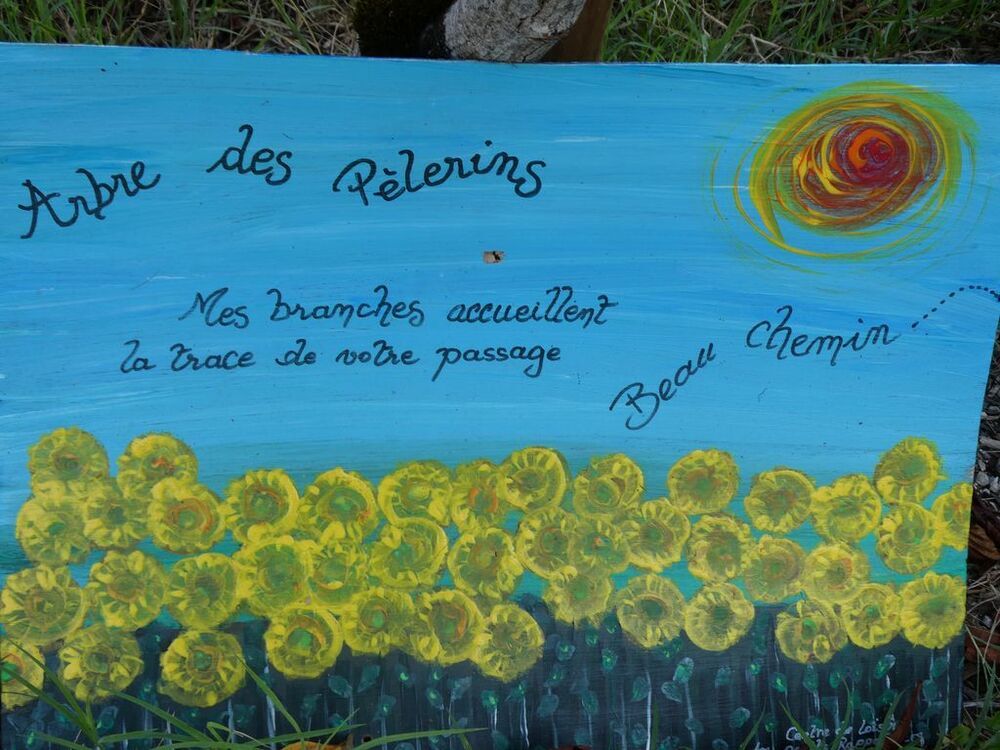 Arbre des Pèlerins
Mes branches accueillent
la trace de votre passage
Beau chemin
Centre de Loisirs